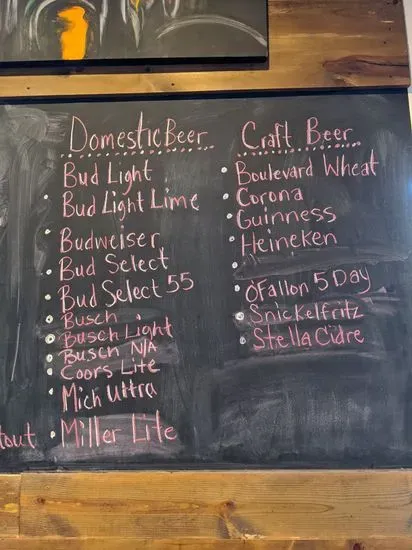 Domestic Beer
Bud Light
Bud Light Lime
Budweiser
Bud Select
Bud Select 55
Busch
Busch Light
Busch N/A
Coors Lite
Mich Ultra
Miller Lite
Craft Beer
Boulevard Wheat
Corona
Guinness
Heineken
O'Fallon 5 Day
Snickelfritz
Stella Cidre